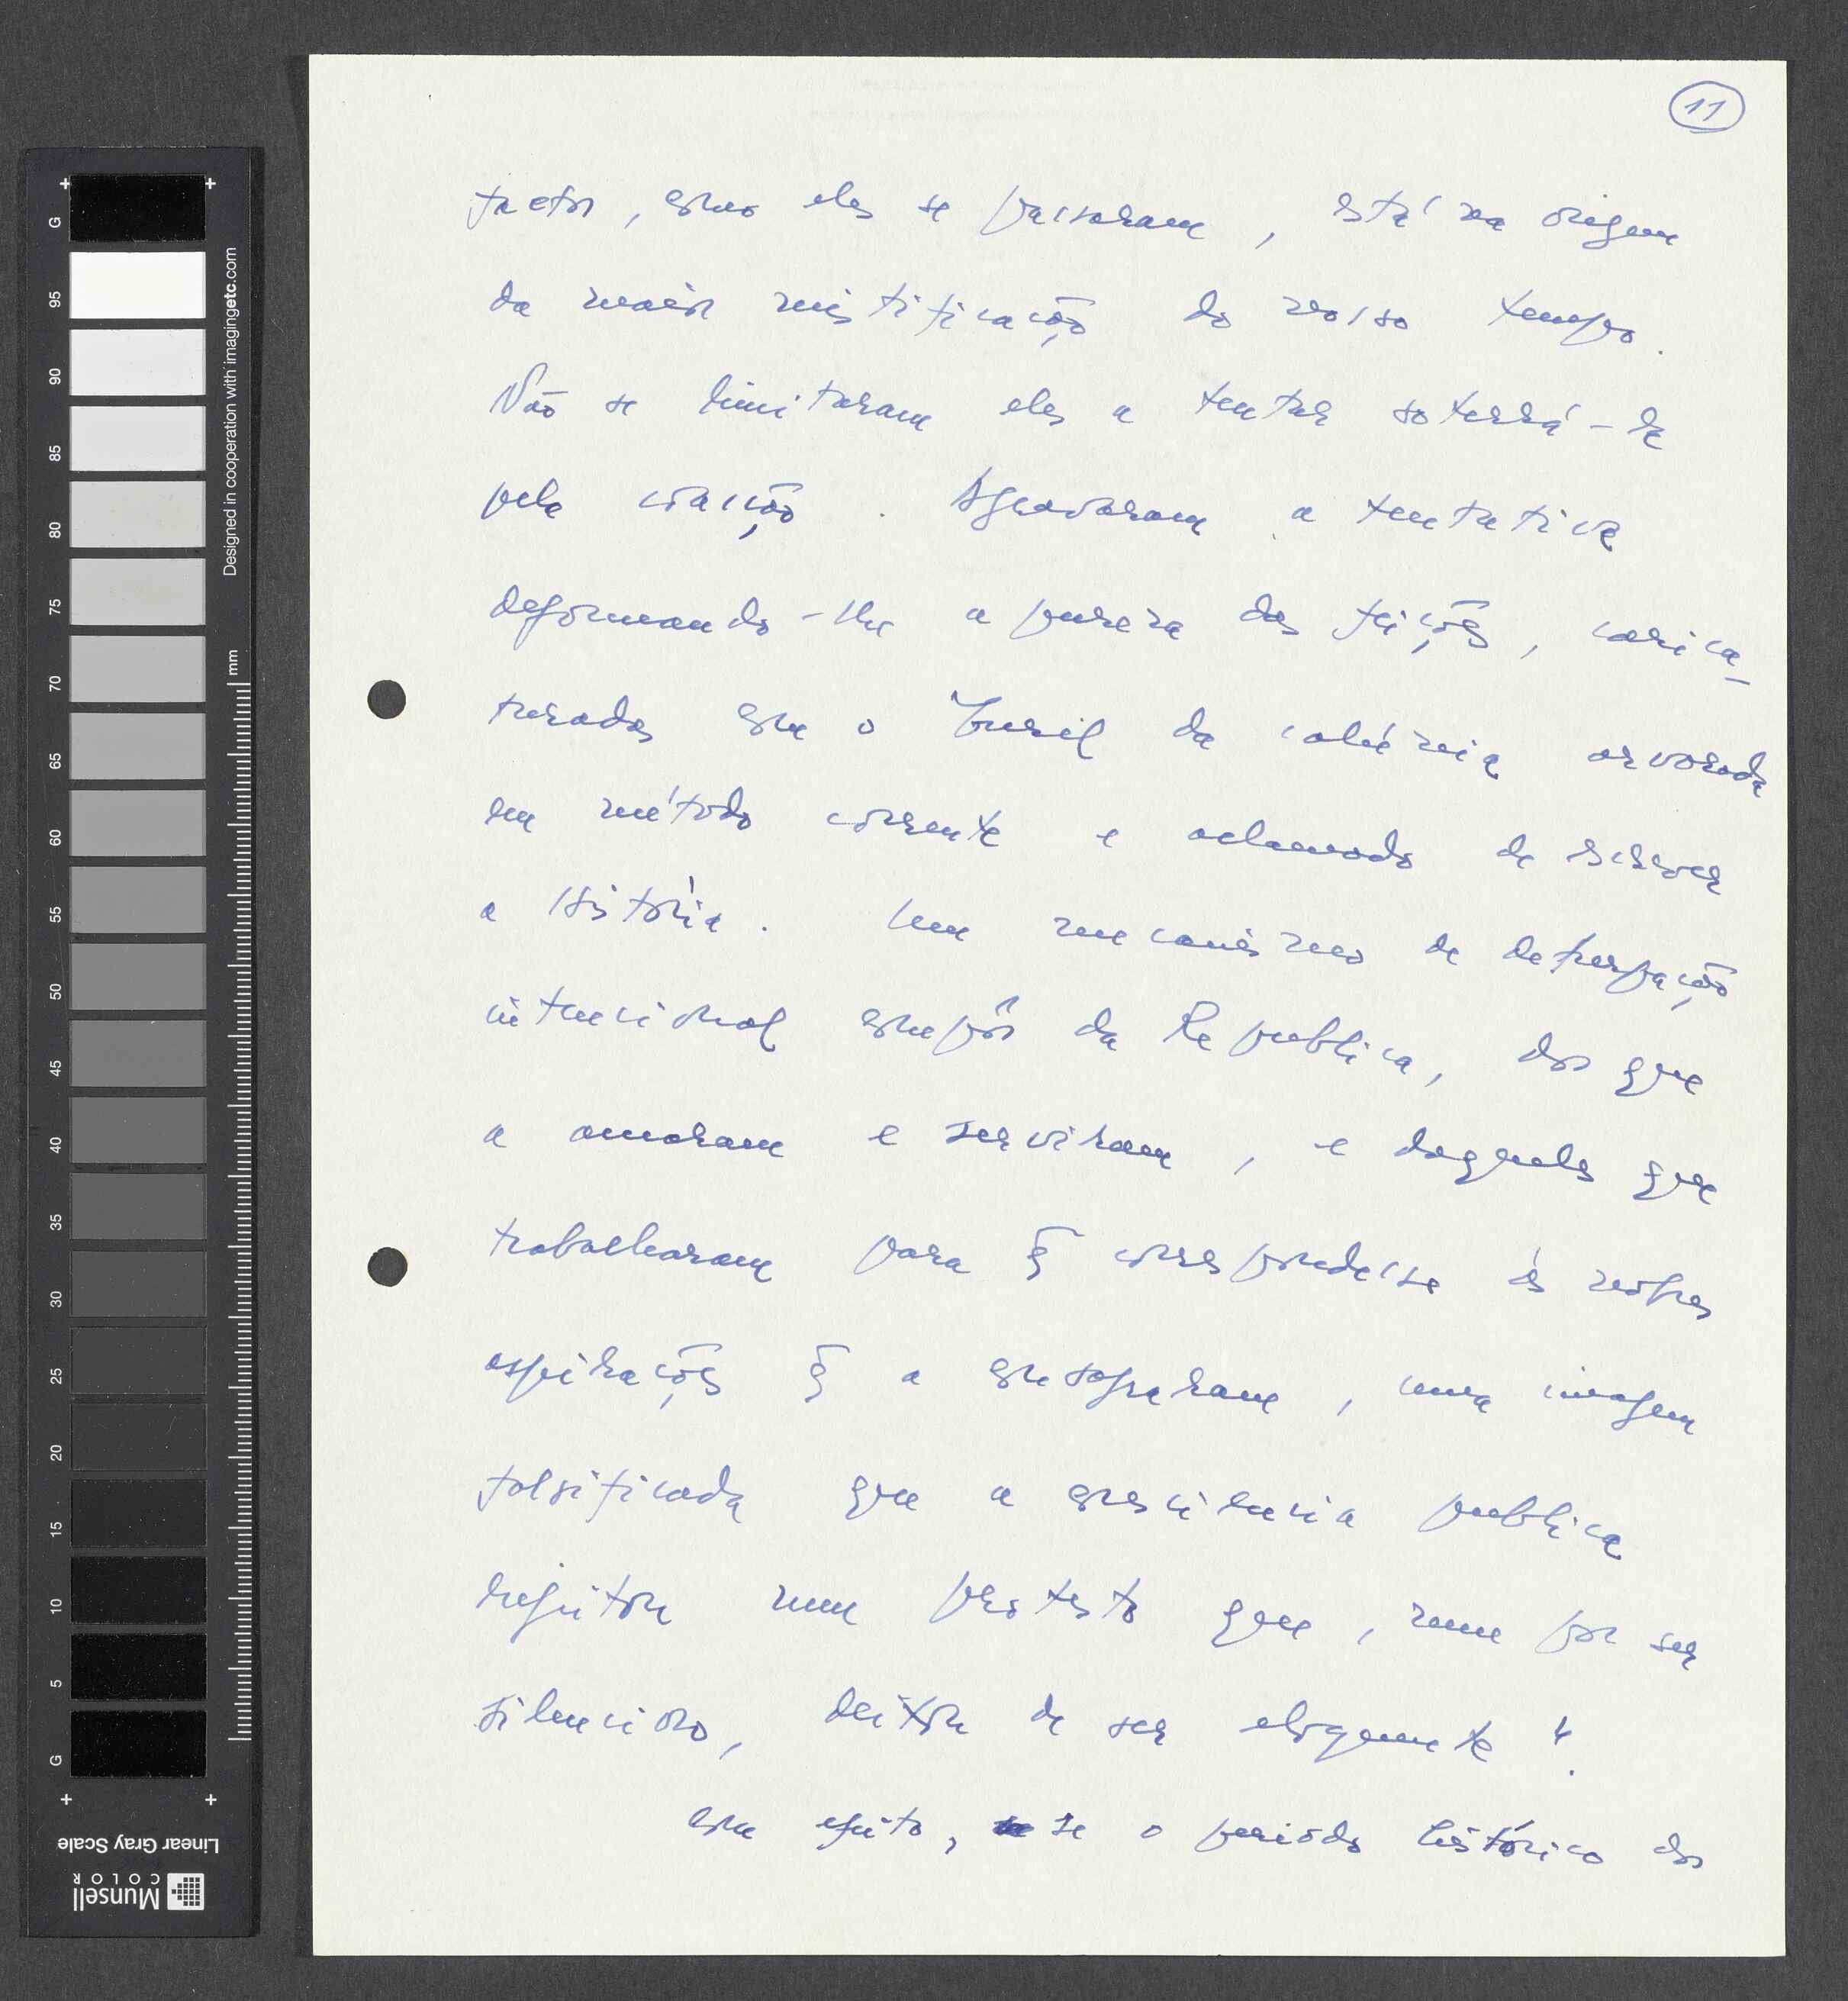 11
factos, como eles se passaram, está na origem
da maior mistificação do nosso tempo.
Não se limitaram eles a tentar soterrá-la
pela coacção. Agravaram a tentativa
deformando-lhe a pureza das feições, carica-
turadas com o buril da calúnia arvorada
em método corrente e aclamado de escrever
a História. Um mecanismo de deturpação
intencional compôs da Republica, dos que
a amaram e serviram, e daqueles que
trabalharam para q̃ correspondesse às nobres
aspirações q̃ a consagraram, uma imagem
falsificada que a consciencia publica
rejeitou num protesto que, nem por ser
silencioso, deixou de ser eloquente".
Com efeito, se o periodo histórico dos
G 95 90 85 80 75 70 65 60 55 50 45 40 35 30 25 20 15 10 5 G
mm
Designed in cooperation with imagingetc.com
Linear Gray Scale
Munsell
COLOR